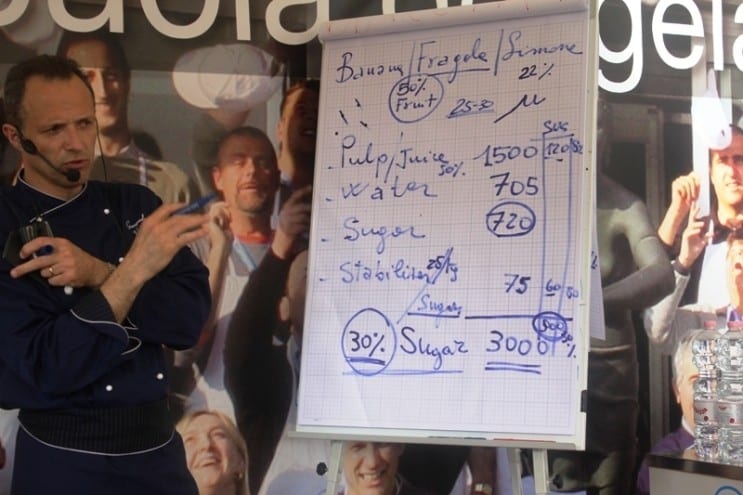 uola
gela
Banana/Fragola/Limone
50%
Fruit
22%
25-30
SUG
- Pulp/Juice 50% 1500 120
- Water 705
- Sugar 720
- Stabiliser 25/kg 75 60
Sugar
900
30% Sugar 3000